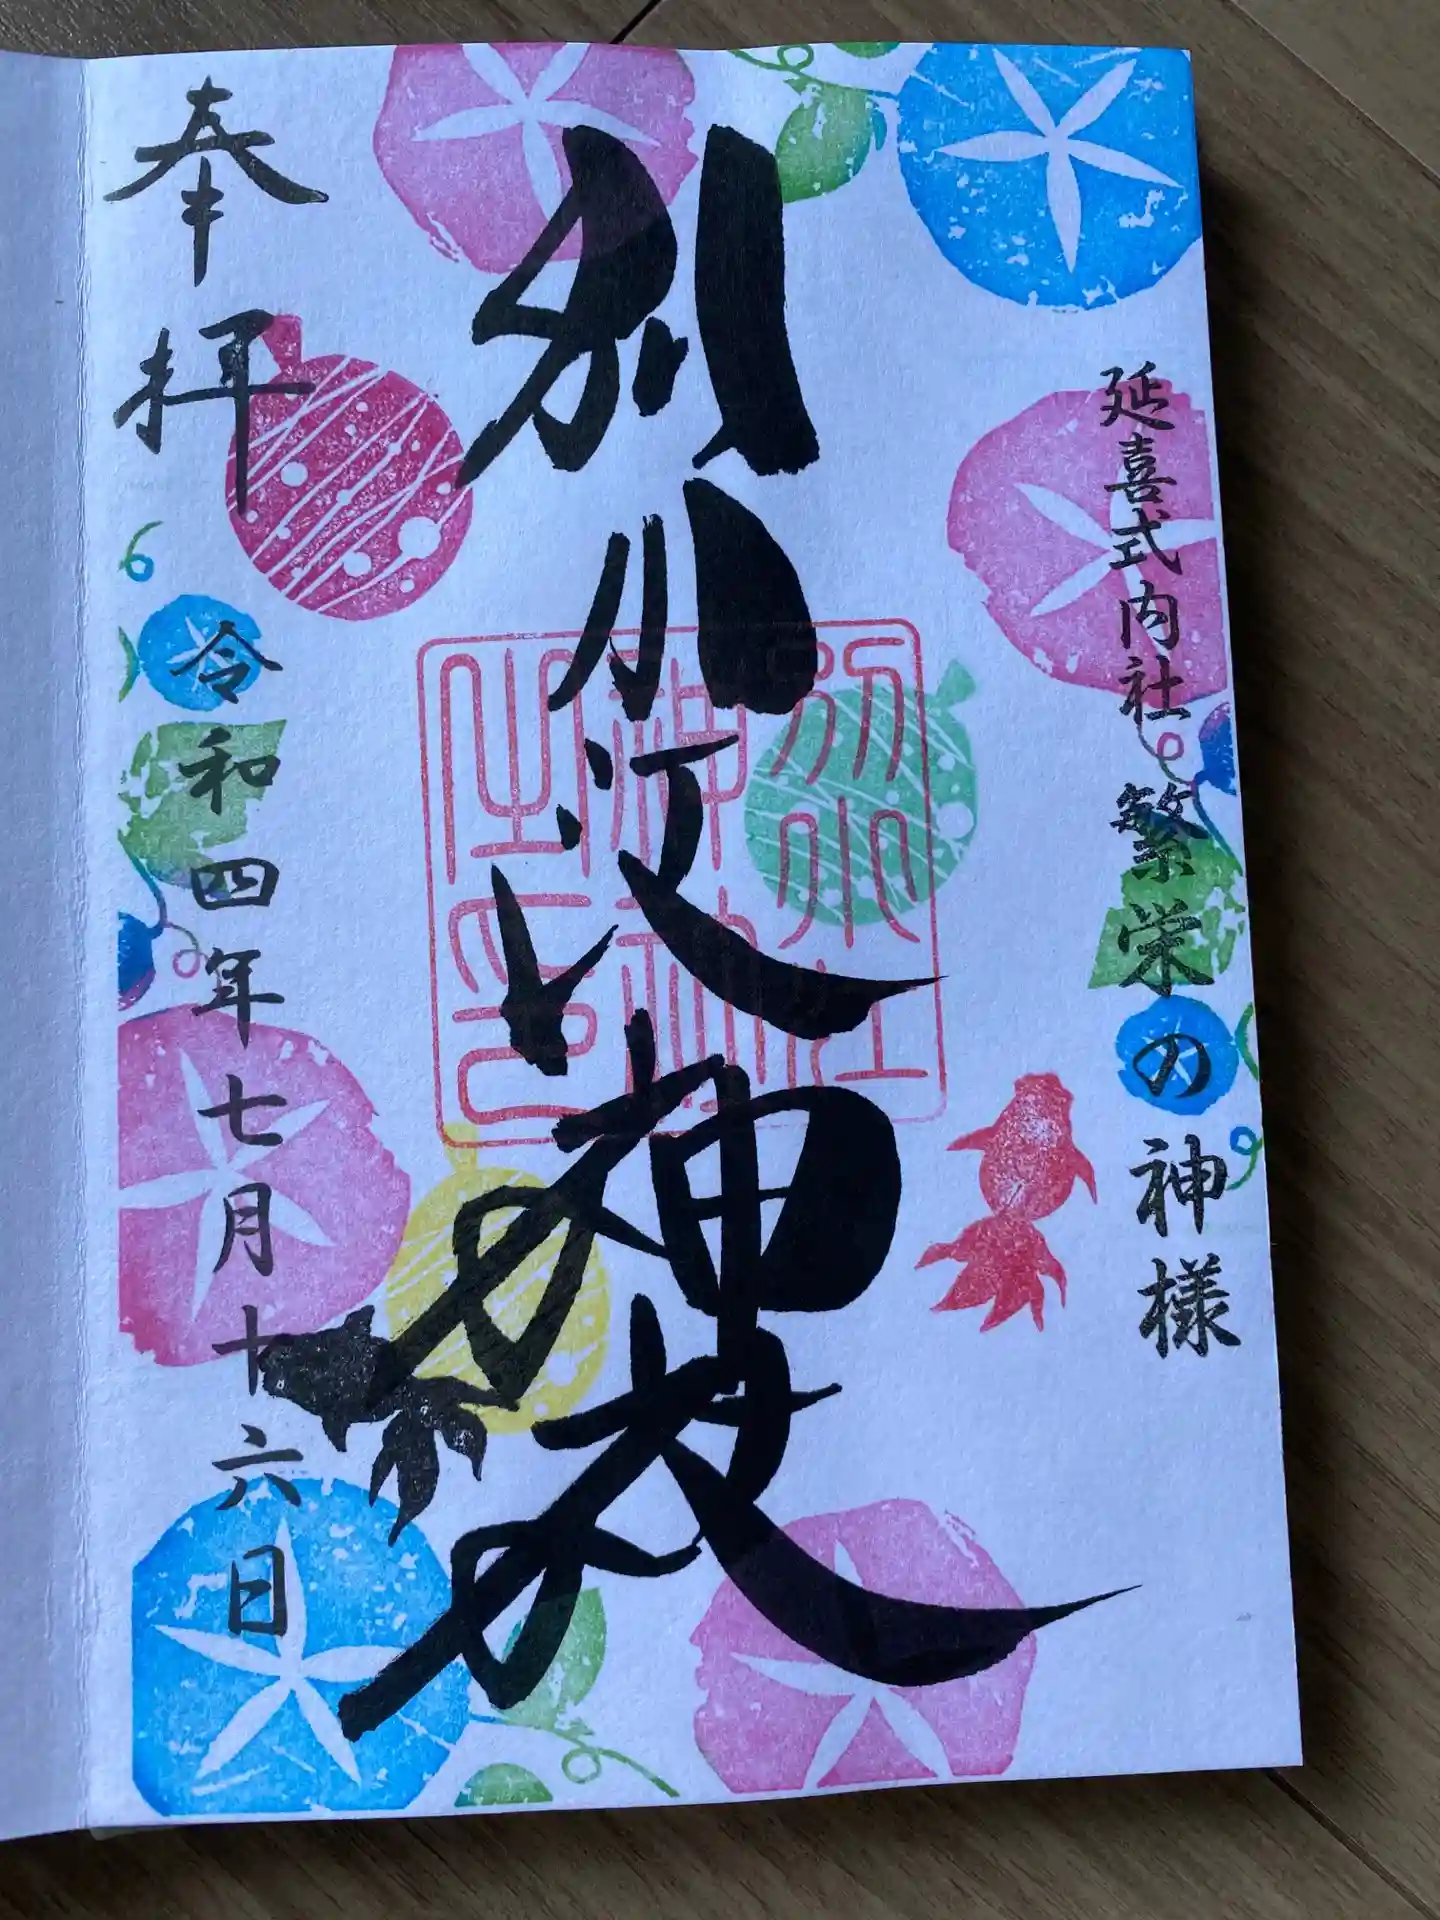 延喜式内社 繁栄の神様
別小江神社
奉拝
令和四年七月十六日